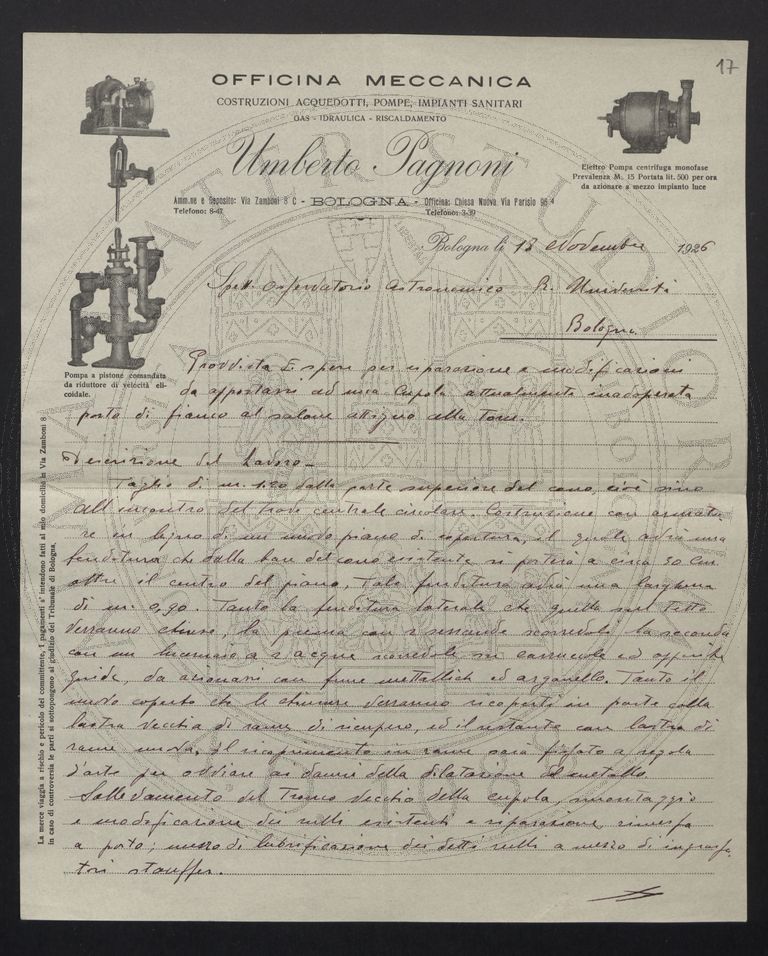 17
OFFICINA MECCANICA
COSTRUZIONI ACQUEDOTTI, POMPE, IMPIANTI SANITARI
GAS - IDRAULICA - RISCALDAMENTO
Umberto Pagnoni
Elettro Pompa centrifuga monofase
Prevalenza M. 15 Portata lit. 500 per ora
da azionare a mezzo impianto luce
Amm.ne e Deposito: Via Zamboni 8 C - BOLOGNA - Officina: Chiesa Nuova Via Parisio
Telefono: 8-47 Telefono: 3-39
Bologna li 18 Novembre 1926
Spett. Osservatorio Astronomico R. Università
Bologna
Pompa a pistone comandata
da riduttore di velocità eli-
coidale.
Provvista e opere per riparazione e modificazioni
da apportarsi ad una Cupola attualmente inadoperata
posta di fianco al salone attiguo alla Torre.
Descrizione del Lavoro
Taglio di m. 1.20 dalla parte superiore del cono, cioè sino
all'incontro del trave centrale circolare. Costruzione con armatu
re in legno di un nuovo piano di copertura, il quale avrà una
fenditura che dalla base del cono esistente si porterà a circa 50 cm
oltre il centro del piano. Tale fenditura avrà una larghezza
di m. 0,90. Tanto la fenditura laterale che quella sul Tetto
verranno chiuse, la prima con 2 serrande scorrevoli la seconda
con un lucernaio a 2 acque scorrevole su carrucole ed apposite
guide, da azionarsi con fune mettallich ed arganello. Tanto il
nuovo coperto che le chiusure verranno ricoperti in parte colla
lastra vecchia di rame di ricupero, ed il restante con lastra di
rame nuova. Il ricoprimento in rame sarà fissato a regola
d'arte per ovviare ai danni della dilatazione del metallo.
Sollevamento del Tronco vecchio della cupola, smontaggio
e modificazione dei rulli esistenti e riparazione, rimessa
a posto; mezzo di lubrificazione dei detti rulli a mezzo di ingrassa
tori stauffer.
La merce viaggia a rischio e pericolo del committente, I pagamenti s' intendono fatti al mio domicilio in Via Zamboni 8
in caso di controversia le parti si sottopongono al giudizio del Tribunale di Bologna.